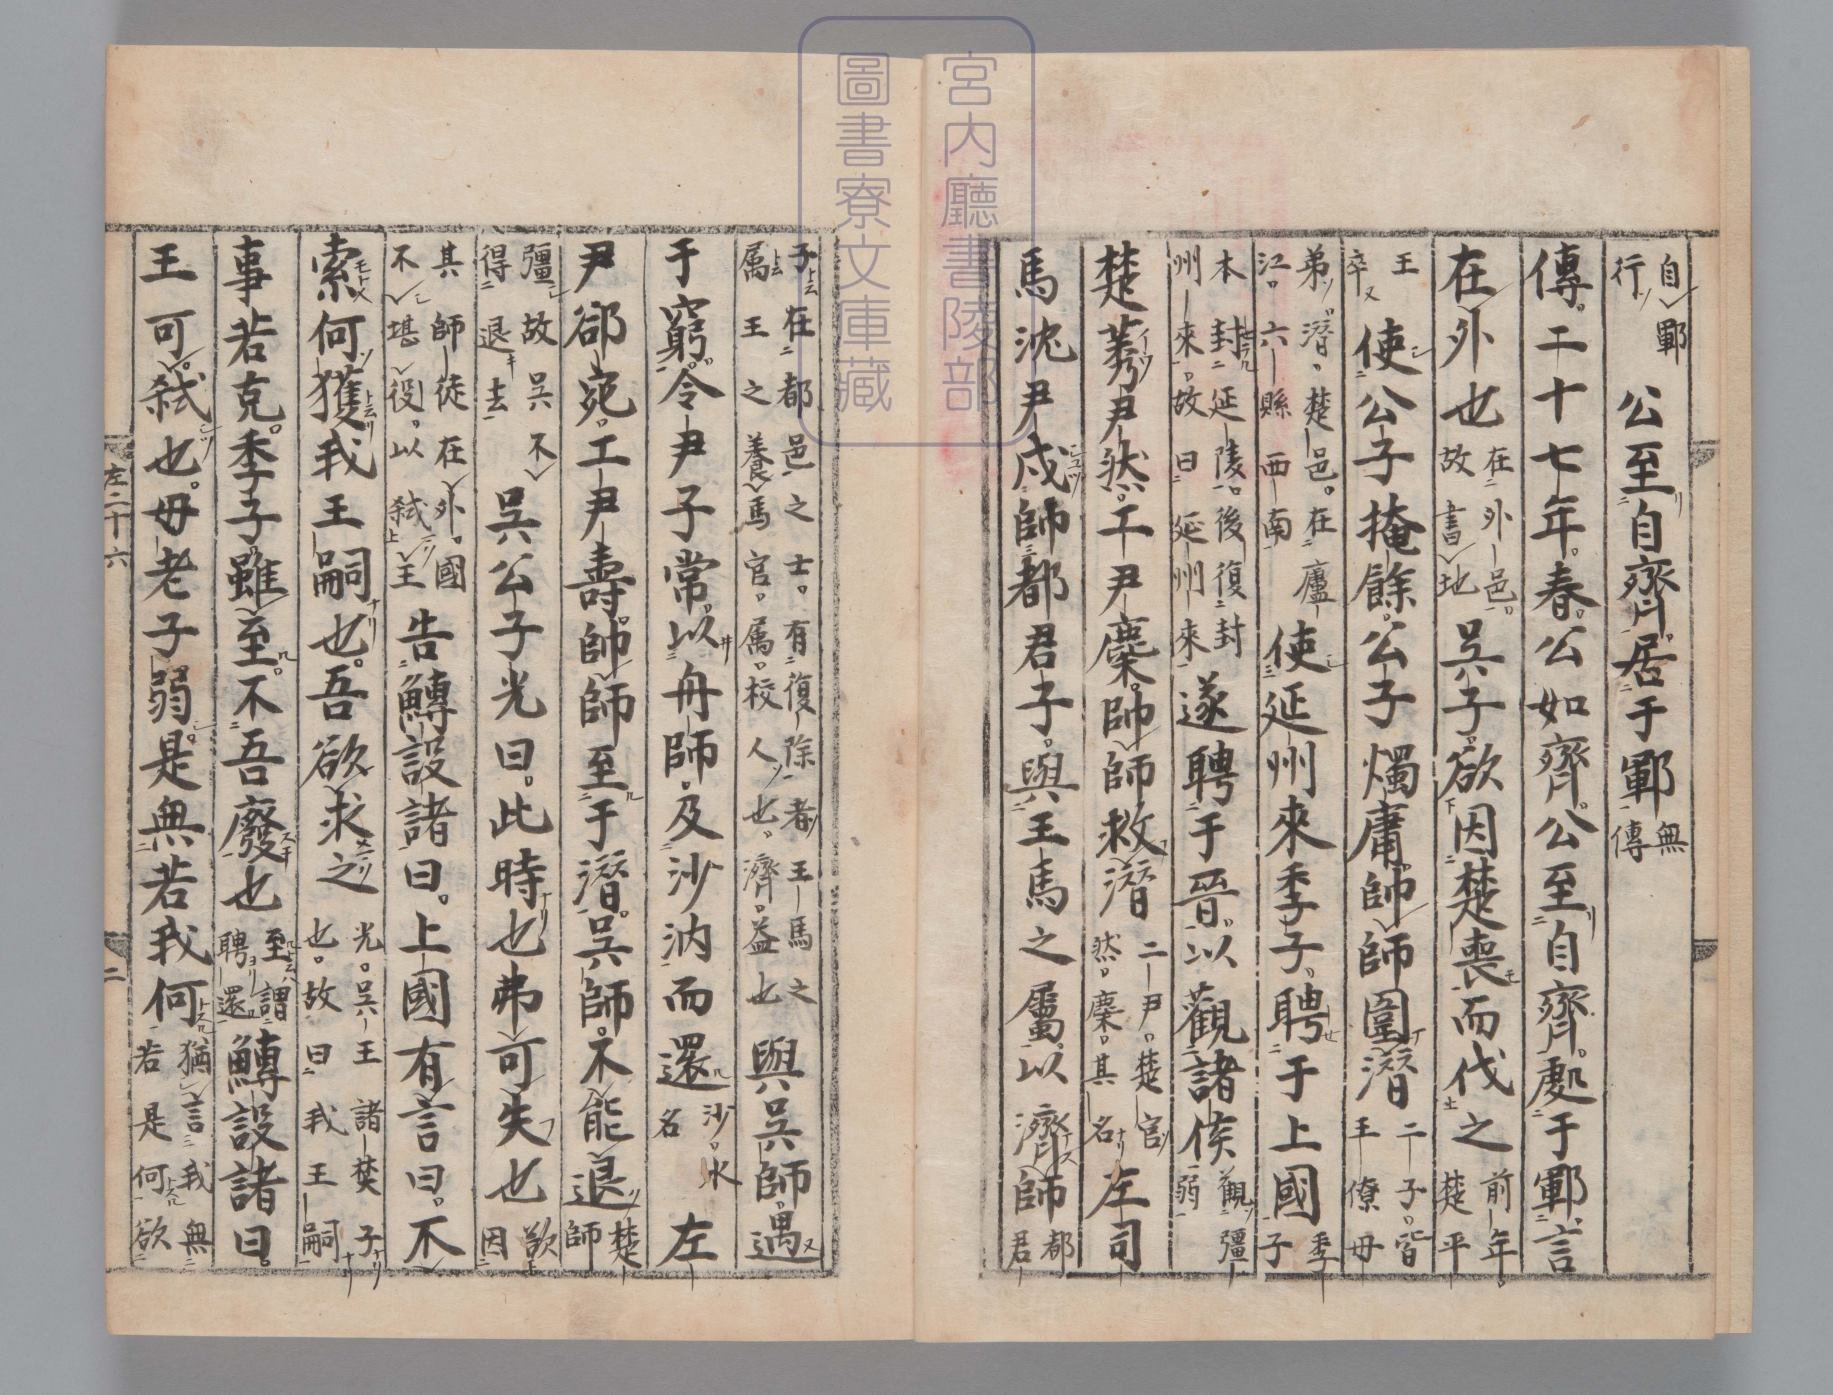 自鄆行公至自齊居于鄆無傳
傳二十七年春公如齊公至自齊處于鄆言
在外也在外邑故書地吳子欲因楚喪而伐之前年楚平
王卒使公子掩餘公子燭庸帥師圍潛二子皆王僚母
弟潛楚邑在廬江六縣西南使延州來季子聘于上國季子
本封延陵後復封州來故曰延州來遂聘于晉以觀諸侯觀彊弱
楚莠尹然工尹麇帥師救潛二尹楚官然麇其名左司
馬沈尹戌帥都君子與王馬之屬以濟師都君
子在都邑之士有復除者王馬之属王之養馬官属校人也濟益也與吳師遇
于窮令尹子常以舟師及沙汭而還沙水名左
尹郤宛工尹壽帥師至于潛吳師不能退楚師
彊故吳不得退去吳公子光曰此時也弗可失也欲因
其師徒在外國不堪役以弒王告鱄設諸曰上國有言曰不
索何獲我王嗣也吾欲求之光吳王諸樊子也故曰我王嗣
事若克季子雖至不吾廢也至謂聘還鱄設諸曰
王可弒也母老子弱是無若我何猶言我無若是何欲
左二十六
二
宮内廳書陵部
圖書寮文庫藏